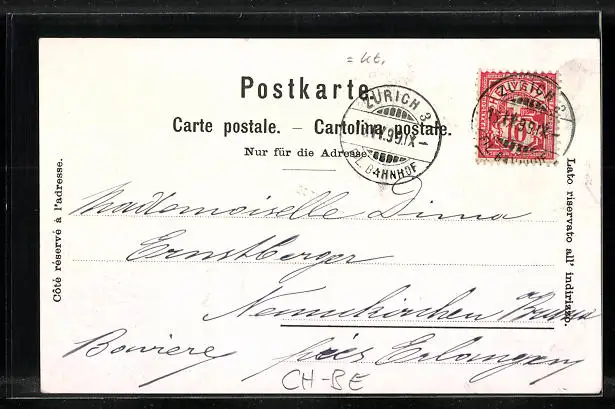 = Lit.
Postkarte.
Carte postale. – Cartolina postale.
Nur für die Adresse.
ZÜRICH 3
VI.99.IX–
Z. BAHNHOF
10
Côté réservé à l'adresse.
Lato riservato all' indirizzo.
Mademoiselle Dina
Ernstberger
Neunkirchen
Baviere près Erlangen
CH-BE